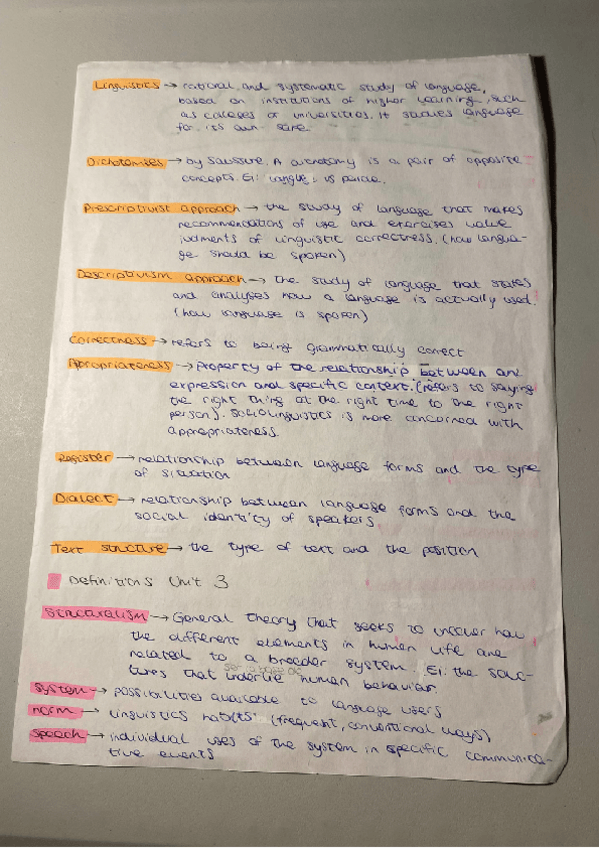 Linguistics → rational and systematic study of language,
based on institutions of higher learning, such
as colleges or universities. It studies language
for its own sake.
Dichotomies → by Saussure. A dichotomy is a pair of opposite
concepts. Ej: langue vs parole.
Prescriptivist approach → the study of language that makes
recommendations of use and exercises value
judments of linguistic correctness. (how langua-
ge should be spoken)
Descriptivism approach → the study of language that states
and analyses how a language is actually used.
(how language is spoken)
correctness → refers to being grammatically correct
Apropriateness → Property of the relationship between an
expression and specific context. (refers to saying
the right thing at the right time to the right
person). Sociolinguistics is more concerned with
appropriateness.
Register → relationship between language forms and the type
of situation
Dialect → relationship between language forms and the
social identity of speakers
Text structure → the type of text and the position
Definitions Unit 3
Structuralism → General theory that seeks to uncover how
the different elements in human life are
related to a broader system. Ej: the struc-
tures that underlie human behavior.
system → possibilities available to language users
norm → linguistics habits (frequent, conventional ways)
speech → individual uses of the system in specific communica-
tive events